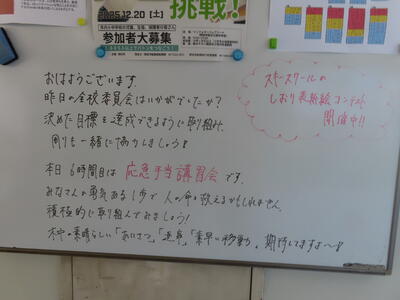 挑戦!
2025.12.20[土]
参加者大募集
おはようございます。
昨日の全校委員会はいかがでしたか?
決めた目標を達成できるように取り組み、
周りも一緒に協力しましょう!
本日6時間目は応急手当講習会です。
みなさんの勇気ある1歩で人の命を救えるかもしれません。
積極的に取り組んでみましょう!
素晴らしい「あいさつ」「返事」「素早い移動」、期待してますよ〜!
スキースクールの
しおり表紙絵コンテスト
開催中!!